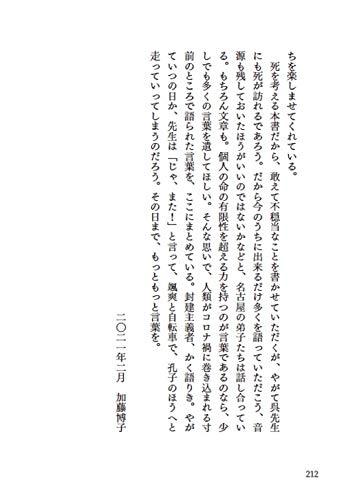 ちを楽しませてくれている。
死を考える本書だから、敢えて不穏当なことを書かせていただくが、やがて呉先生
にも死が訪れるであろう。だから今のうちに出来るだけ多くを語っていただこう、音
源も残しておいたほうがいいのではないかなどと、名古屋の弟子たちは話し合ってい
る。もちろん文章も。個人の命の有限性を超える力を持つのが言葉であるのなら、少
しでも多くの言葉を遺してほしい。そんな思いで、人類がコロナ禍に巻き込まれる寸
前のところで語られた言葉を、ここにまとめている。封建主義者、かく語りき。やが
ていつの日か、先生は「じゃ、また！」と言って、颯爽と自転車で、孔子のほうへと
走っていってしまうのだろう。その日まで、もっともっと言葉を。
二〇二一年二月　加藤博子
212